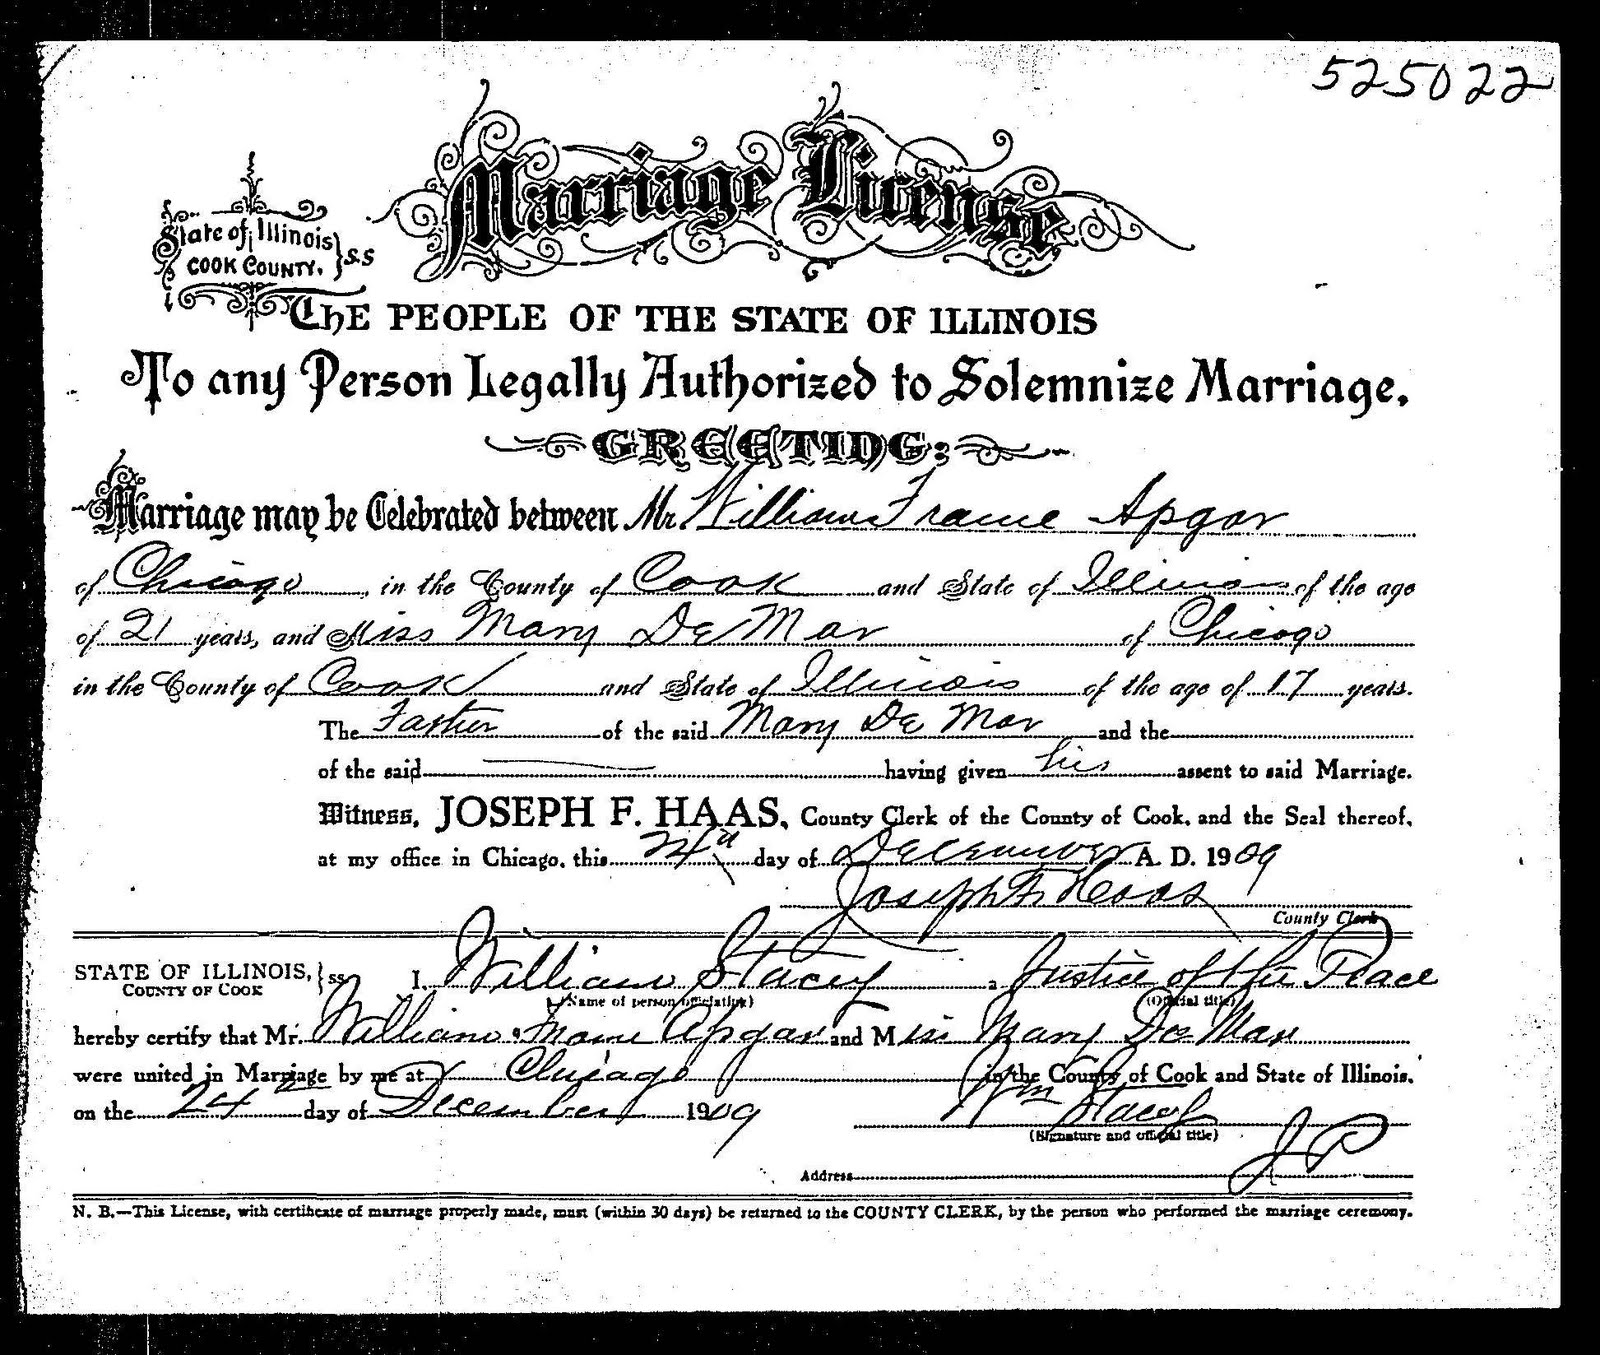 525022
Marriage License
State of Illinois } S.S
COOK COUNTY.
THE PEOPLE OF THE STATE OF ILLINOIS
To any Person Legally Authorized to Solemnize Marriage.
GREETING:
Marriage may be Celebrated between Mr. William Frame Apgar
of Chicago, in the County of Cook and State of Illinois of the age
of 21 years, and Miss Mary De Mar of Chicago
in the County of Cook and State of Illinois of the age of 17 years.
The Father of the said Mary De Mar and the
of the said having given his assent to said Marriage.
Witness, JOSEPH F. HAAS, County Clerk of the County of Cook, and the Seal thereof,
at my office in Chicago, this 24th day of December A. D. 1909
Joseph F. Haas
County Clerk
STATE OF ILLINOIS, } ss I, William Stacey a Justice of the Peace
COUNTY OF COOK (Name of person officiating) (Official title)
hereby certify that Mr. William Frame Apgar and Miss Mary De Mar
were united in Marriage by me at Chicago in the County of Cook and State of Illinois,
on the 24 day of December 1909 Wm Stacey
(Signature and official title)
J P
Address
N. B.—This License, with certificate of marriage properly made, must (within 30 days) be returned to the COUNTY CLERK, by the person who performed the marriage ceremony.